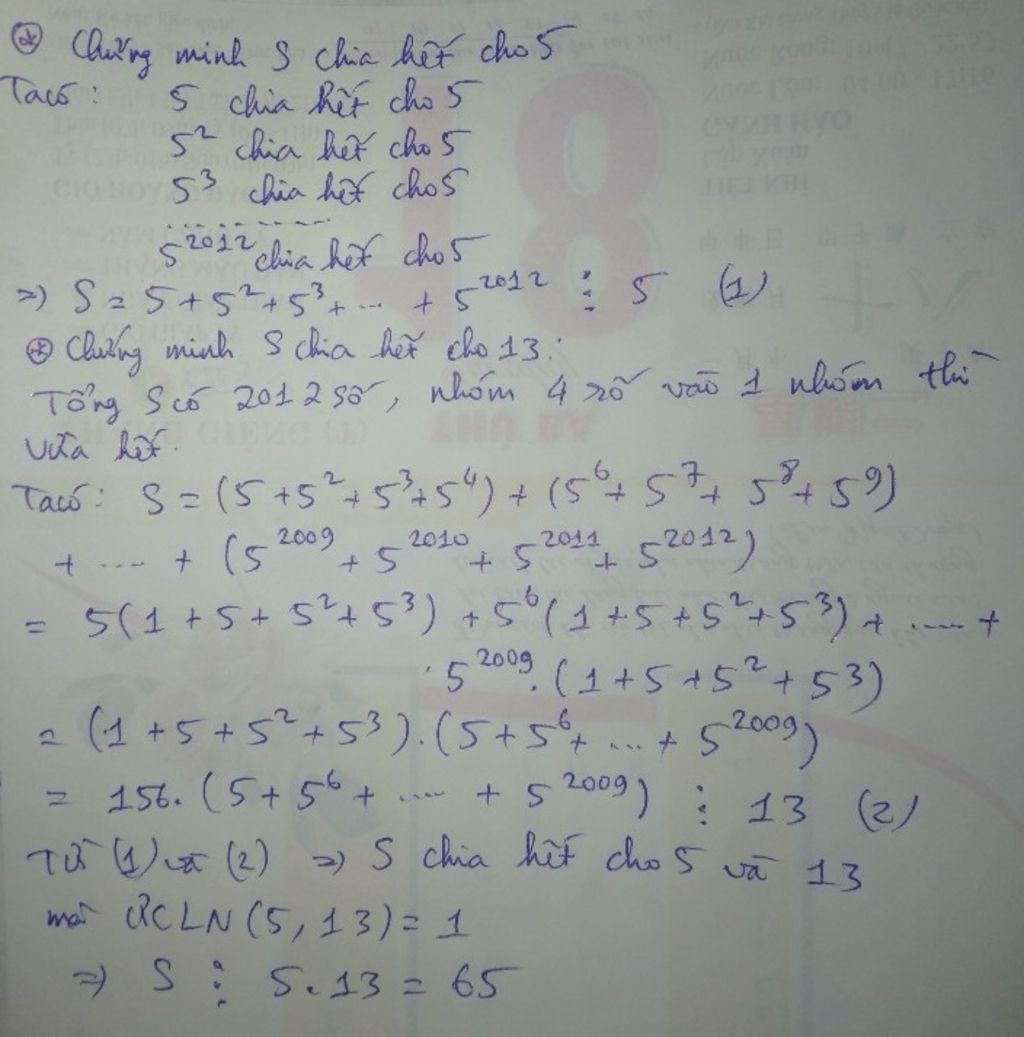 ⊛ Chứng minh S chia hết cho 5
Ta có: 5 chia hết cho 5
5² chia hết cho 5
5³ chia hết cho 5
...........
5²⁰¹² chia hết cho 5
=> S = 5 + 5² + 5³ + ... + 5²⁰¹² ⋮ 5 (1)
⊛ Chứng minh S chia hết cho 13:
Tổng S có 2012 số, nhóm 4 số vào 1 nhóm thì
vừa hết.
Ta có: S = (5 + 5² + 5³ + 5⁴) + (5⁶ + 5⁷ + 5⁸ + 5⁹)
+ .... + (5²⁰⁰⁹ + 5²⁰¹⁰ + 5²⁰¹¹ + 5²⁰¹²)
= 5(1 + 5 + 5² + 5³) + 5⁶(1 + 5 + 5² + 5³) + ..... +
5²⁰⁰⁹.(1 + 5 + 5² + 5³)
= (1 + 5 + 5² + 5³).(5 + 5⁶ + ... + 5²⁰⁰⁹)
= 156.(5 + 5⁶ + ..... + 5²⁰⁰⁹) ⋮ 13 (2)
Từ (1) và (2) => S chia hết cho 5 và 13
mà ƯCLN(5, 13) = 1
=> S ⋮ 5.13 = 65
18
GÀNH HÀO
Lập Xuân
TIẾT KHÍ
THỨ BA
THÁNG GIÊNG (T)